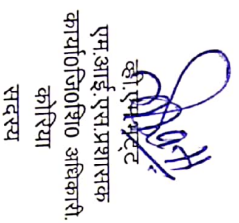 एम.आई.एस.प्रशासक
कार्या0जि0शि0 अधिकारी.
कोरिया
सदस्य